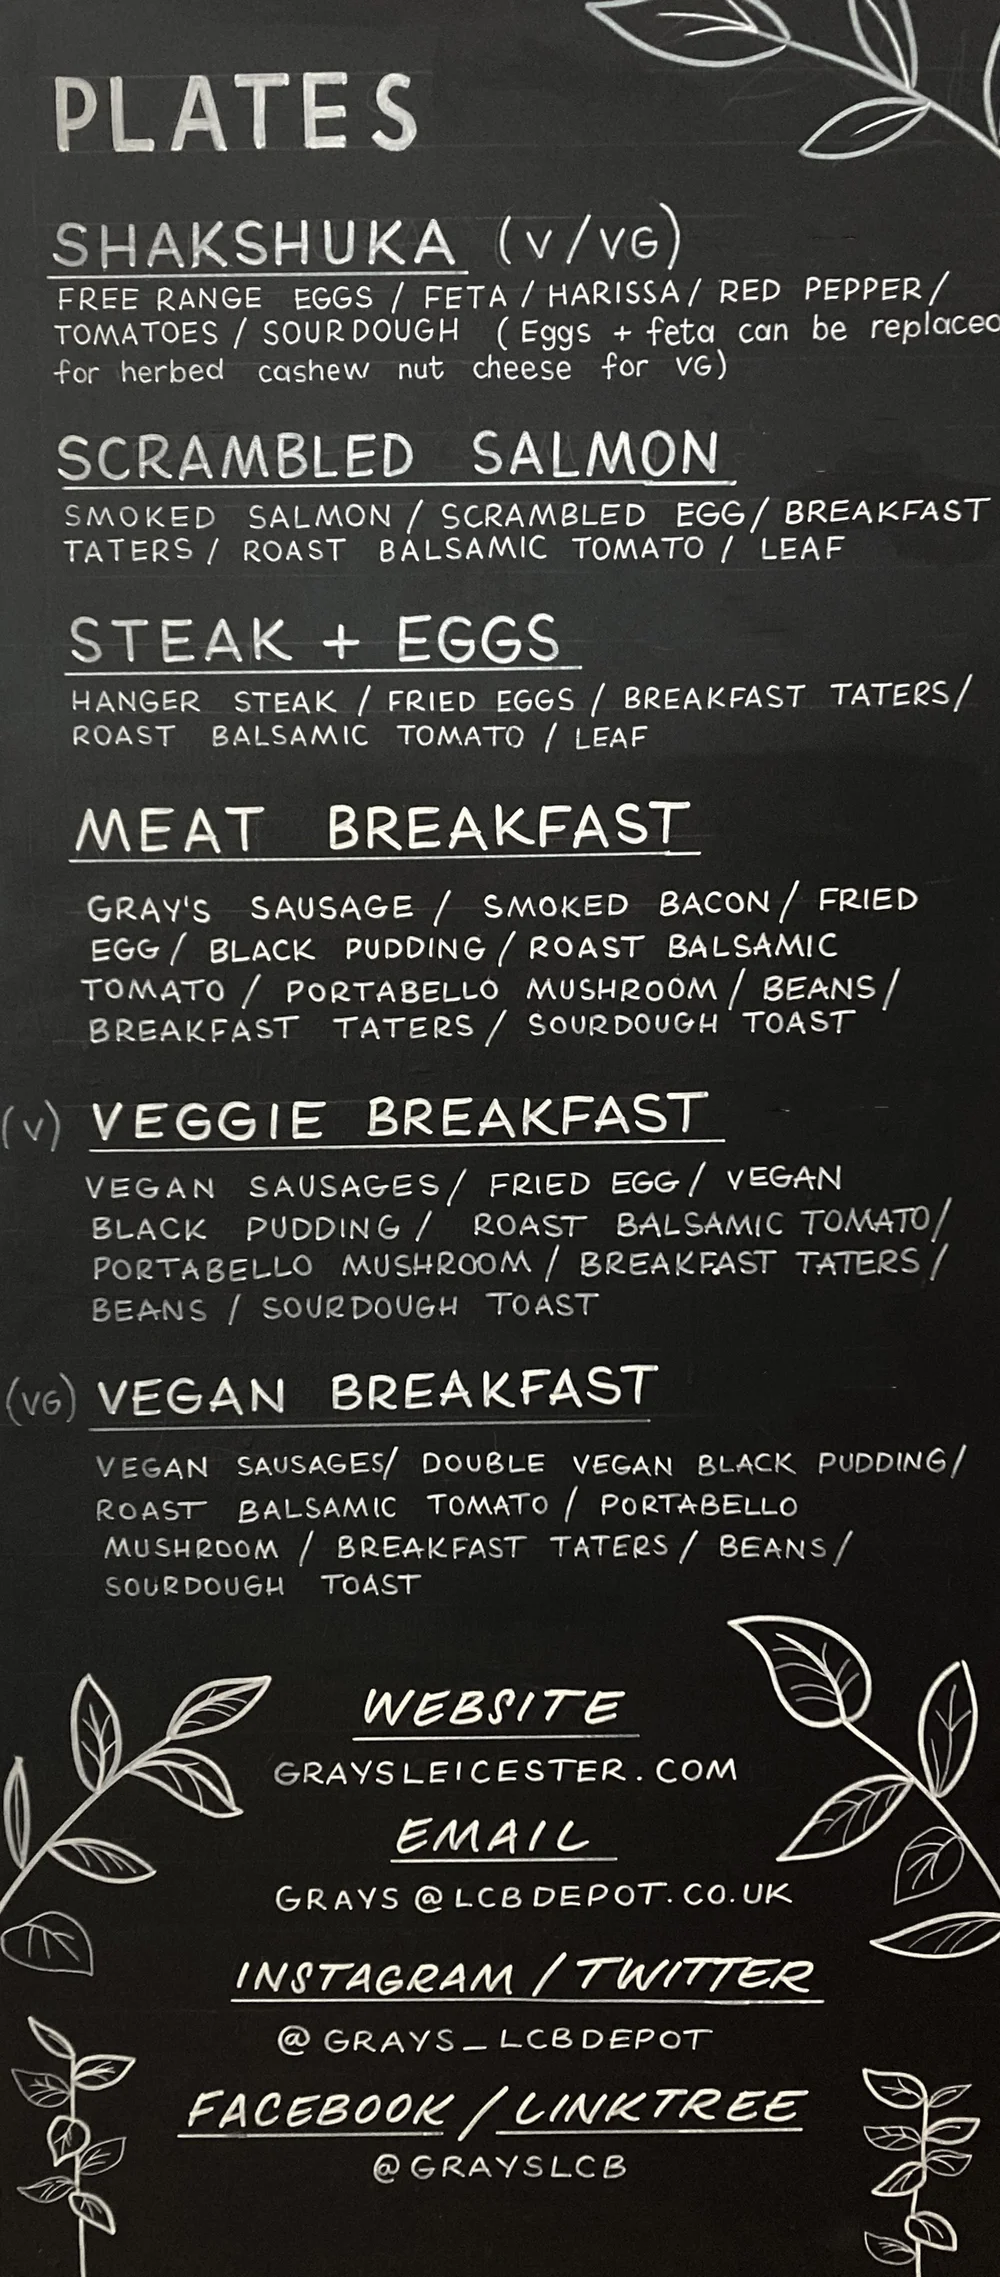 PLATES
SHAKSHUKA (V/VG)
FREE RANGE EGGS / FETA / HARISSA / RED PEPPER /
TOMATOES / SOURDOUGH (Eggs + feta can be replaced
for herbed cashew nut cheese for VG)
SCRAMBLED SALMON
SMOKED SALMON / SCRAMBLED EGG / BREAKFAST
TATERS / ROAST BALSAMIC TOMATO / LEAF
STEAK + EGGS
HANGER STEAK / FRIED EGGS / BREAKFAST TATERS /
ROAST BALSAMIC TOMATO / LEAF
MEAT BREAKFAST
GRAY'S SAUSAGE / SMOKED BACON / FRIED
EGG / BLACK PUDDING / ROAST BALSAMIC
TOMATO / PORTABELLO MUSHROOM / BEANS /
BREAKFAST TATERS / SOURDOUGH TOAST
(V) VEGGIE BREAKFAST
VEGAN SAUSAGES / FRIED EGG / VEGAN
BLACK PUDDING / ROAST BALSAMIC TOMATO /
PORTABELLO MUSHROOM / BREAKFAST TATERS /
BEANS / SOURDOUGH TOAST
(VG) VEGAN BREAKFAST
VEGAN SAUSAGES / DOUBLE VEGAN BLACK PUDDING /
ROAST BALSAMIC TOMATO / PORTABELLO
MUSHROOM / BREAKFAST TATERS / BEANS /
SOURDOUGH TOAST
WEBSITE
GRAYSLEICESTER.COM
EMAIL
GRAYS@LCBDEPOT.CO.UK
INSTAGRAM / TWITTER
@GRAYS_LCBDEPOT
FACEBOOK / LINKTREE
@GRAYSLCB